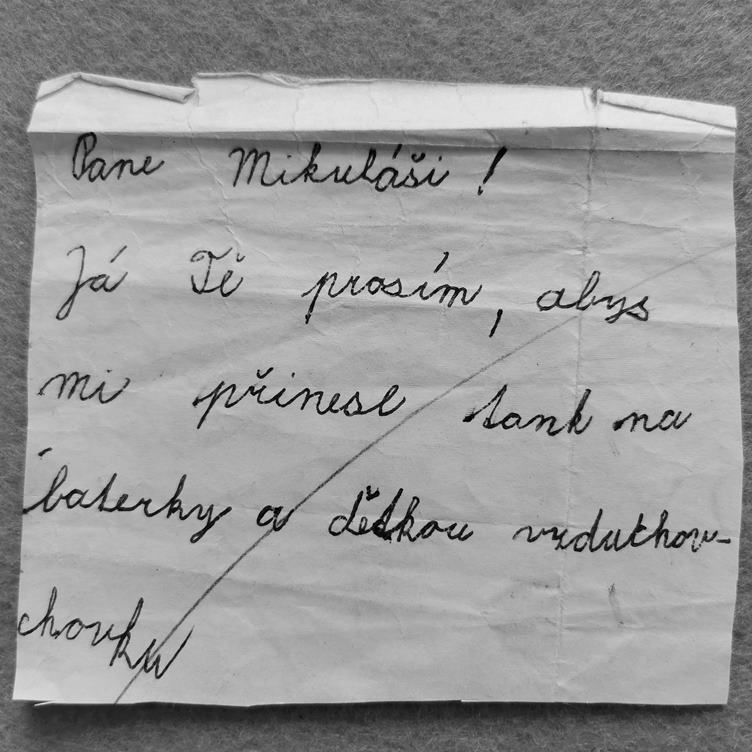 Pane Mikuláši!
Já Tě prosím, abys
mi přinesl tank na
baterky a dětkou vzduthov-
chovku